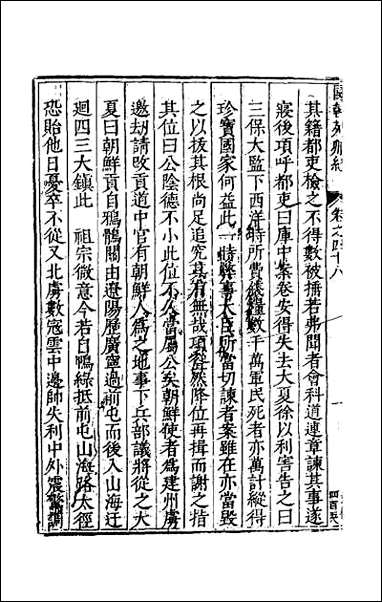 其籍都吏檢之不得數被撻若弗聞者會科道連章諫其事遂
寢後項呼都吏曰庫中案卷安得失去大夏徐以利害告之曰
三保大監下西洋時所費錢糧數千萬軍民死者亦萬計縱得
珍寶國家何益此一時弊事大臣所當切諫者案雖在亦當毀
之以拔其根尚足追究其有無哉項聳然降位再揖而謝之指
其位曰公陰德不小此位不久當屬公矣朝鮮使者為建州虜
邀劫請改貢道中官有朝鮮人為之地事下兵部議將從之大
夏曰朝鮮貢自鴉鶻關由遼陽歷廣寧過前屯而後入山海迂
迴四三大鎮此 祖宗微意今若自鴨綠抵前屯山海路太徑
恐貽他日憂卒不從又北虜數寇雲中邊師失利中外震驚